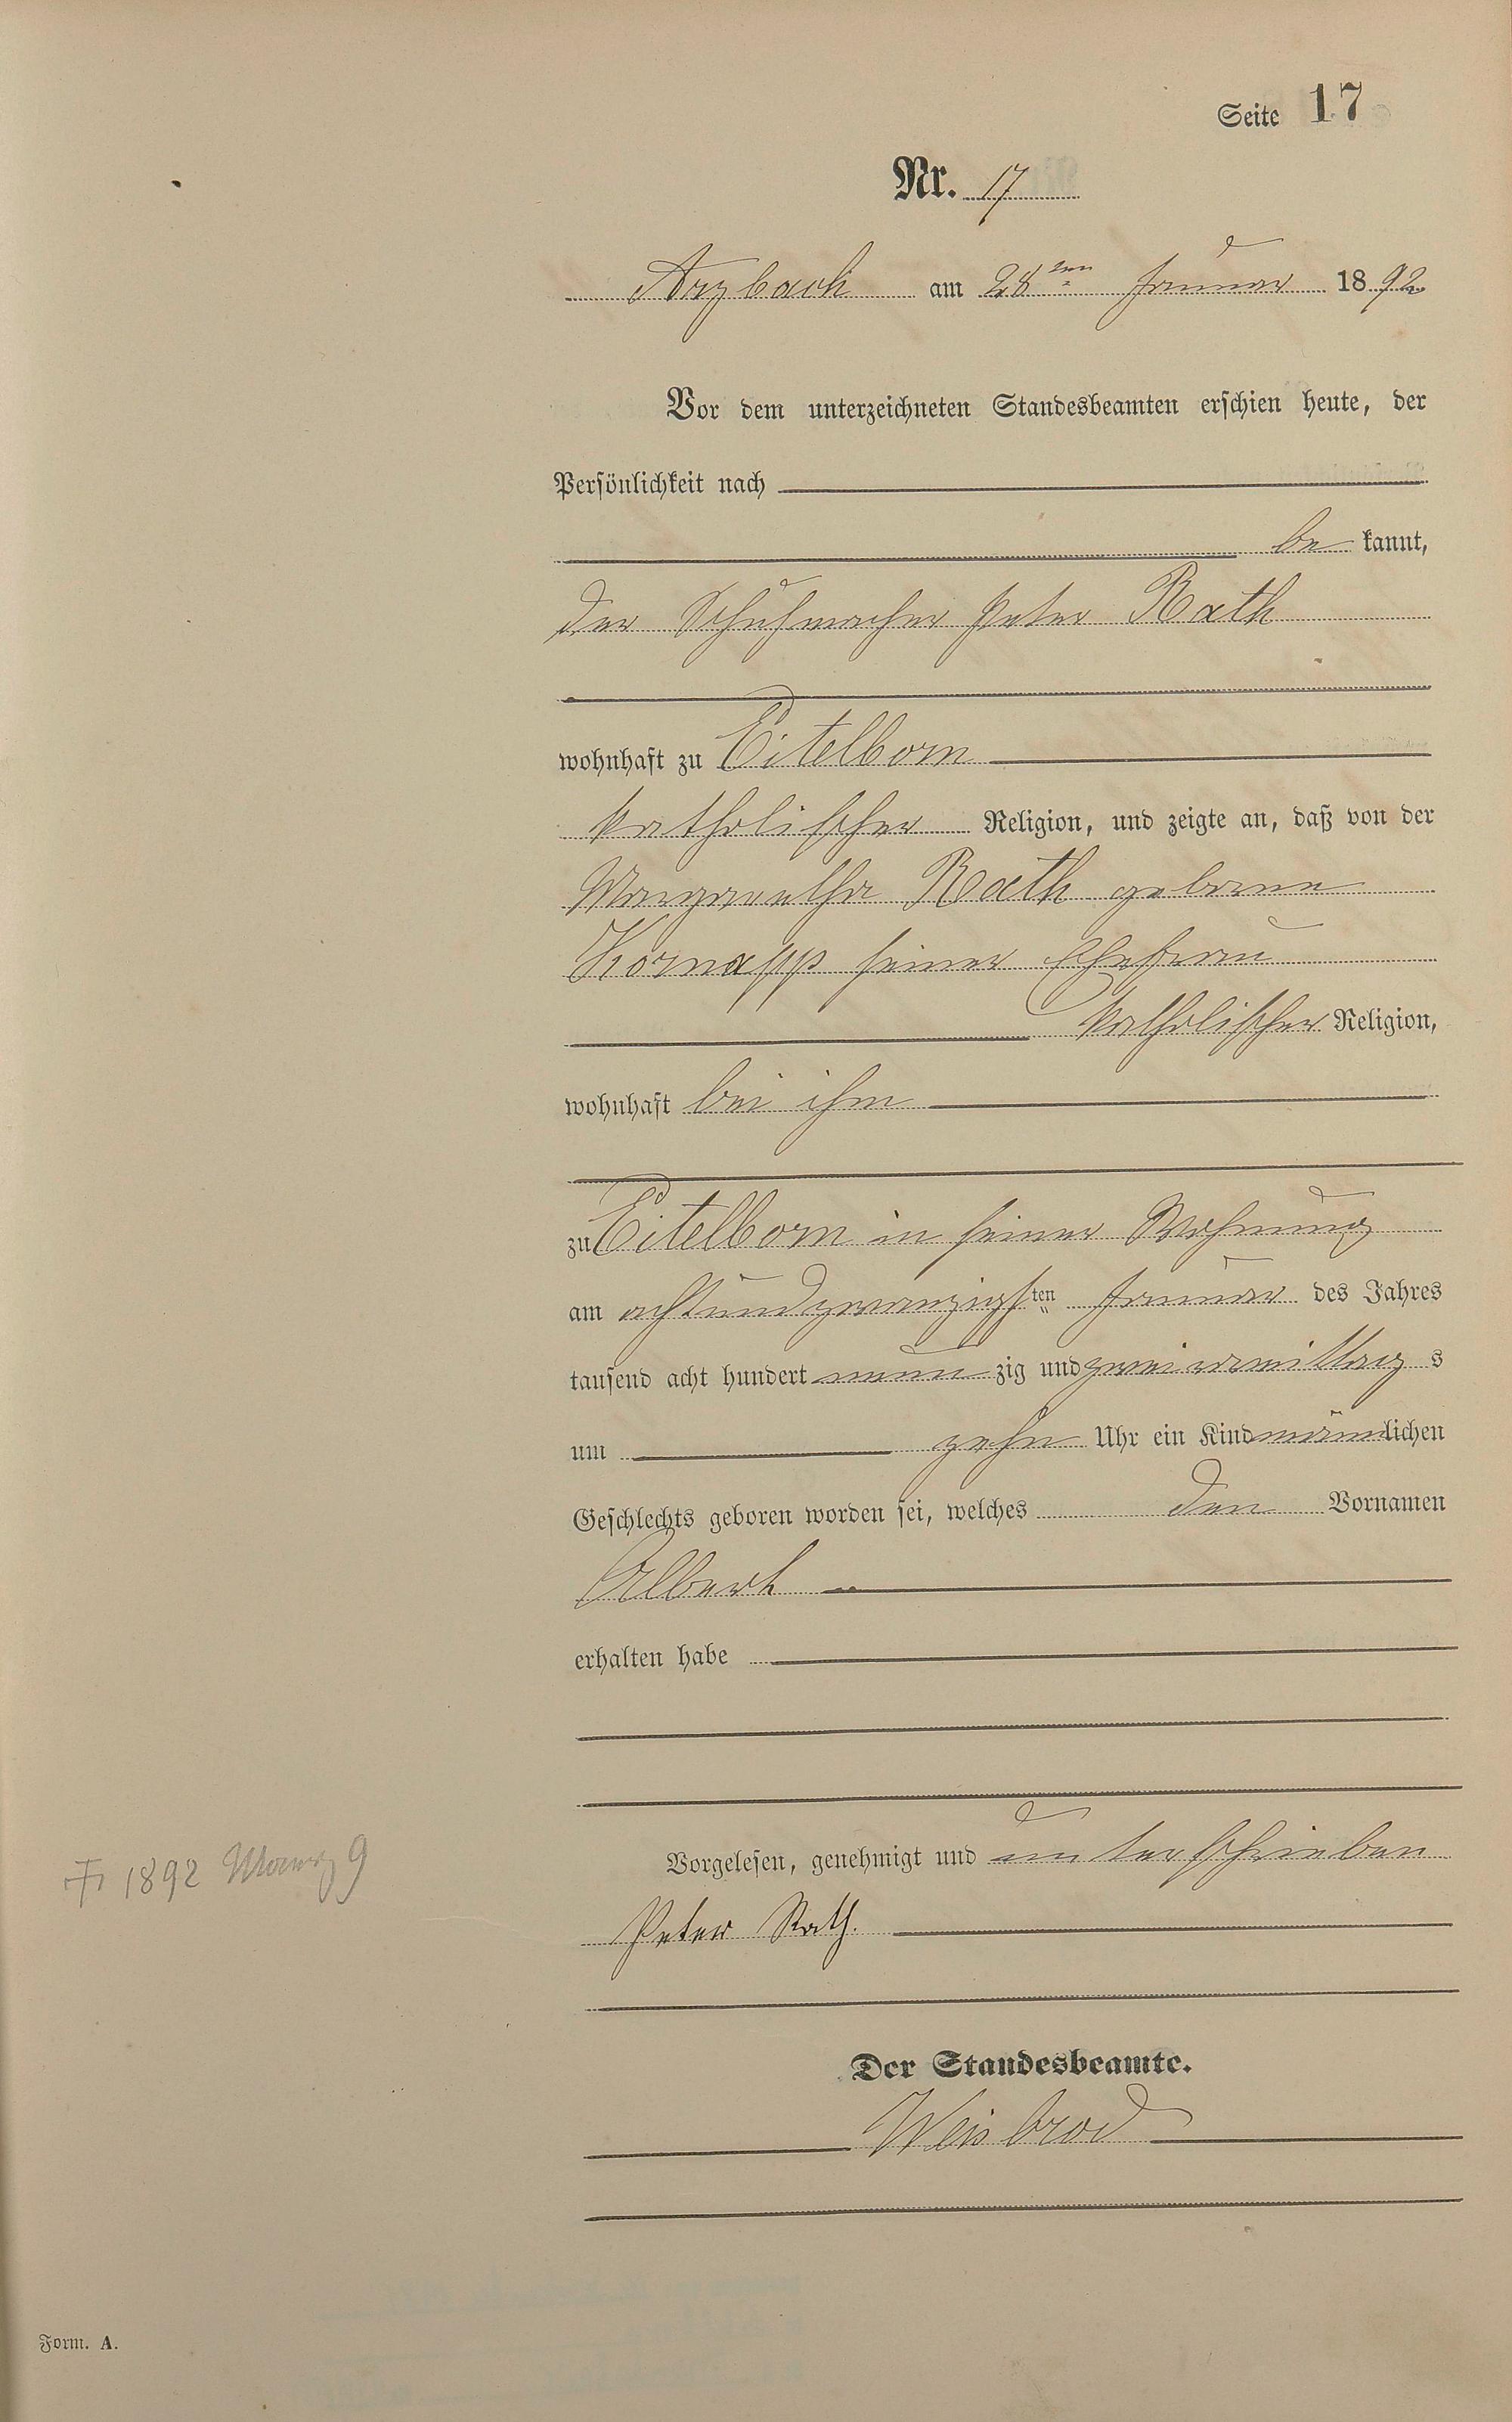 Seite 17
Nr. 17
Arzbach am 28ten Januar 1892
Vor dem unterzeichneten Standesbeamten erschien heute, der
Persönlichkeit nach
be kannt,
der Schuhmacher Peter Rath
wohnhaft zu Eitelborn
katholischer Religion, und zeigte an, daß von der
Margaretha Rath geborne
Kornapp seiner Ehefrau
katholischer Religion,
wohnhaft bei ihm
zu Eitelborn in seiner Wohnung
am achtundzwanzigsten Januar des Jahres
tausend acht hundert neun zig und zwei vormittag s
um zehn Uhr ein Kind männlichen
Geschlechts geboren worden sei, welches den Vornamen
Albert
erhalten habe
Vorgelesen, genehmigt und unterschrieben
† 1892 9
Peter Rath.
Der Standesbeamte.
Weisbrod
Form. A.